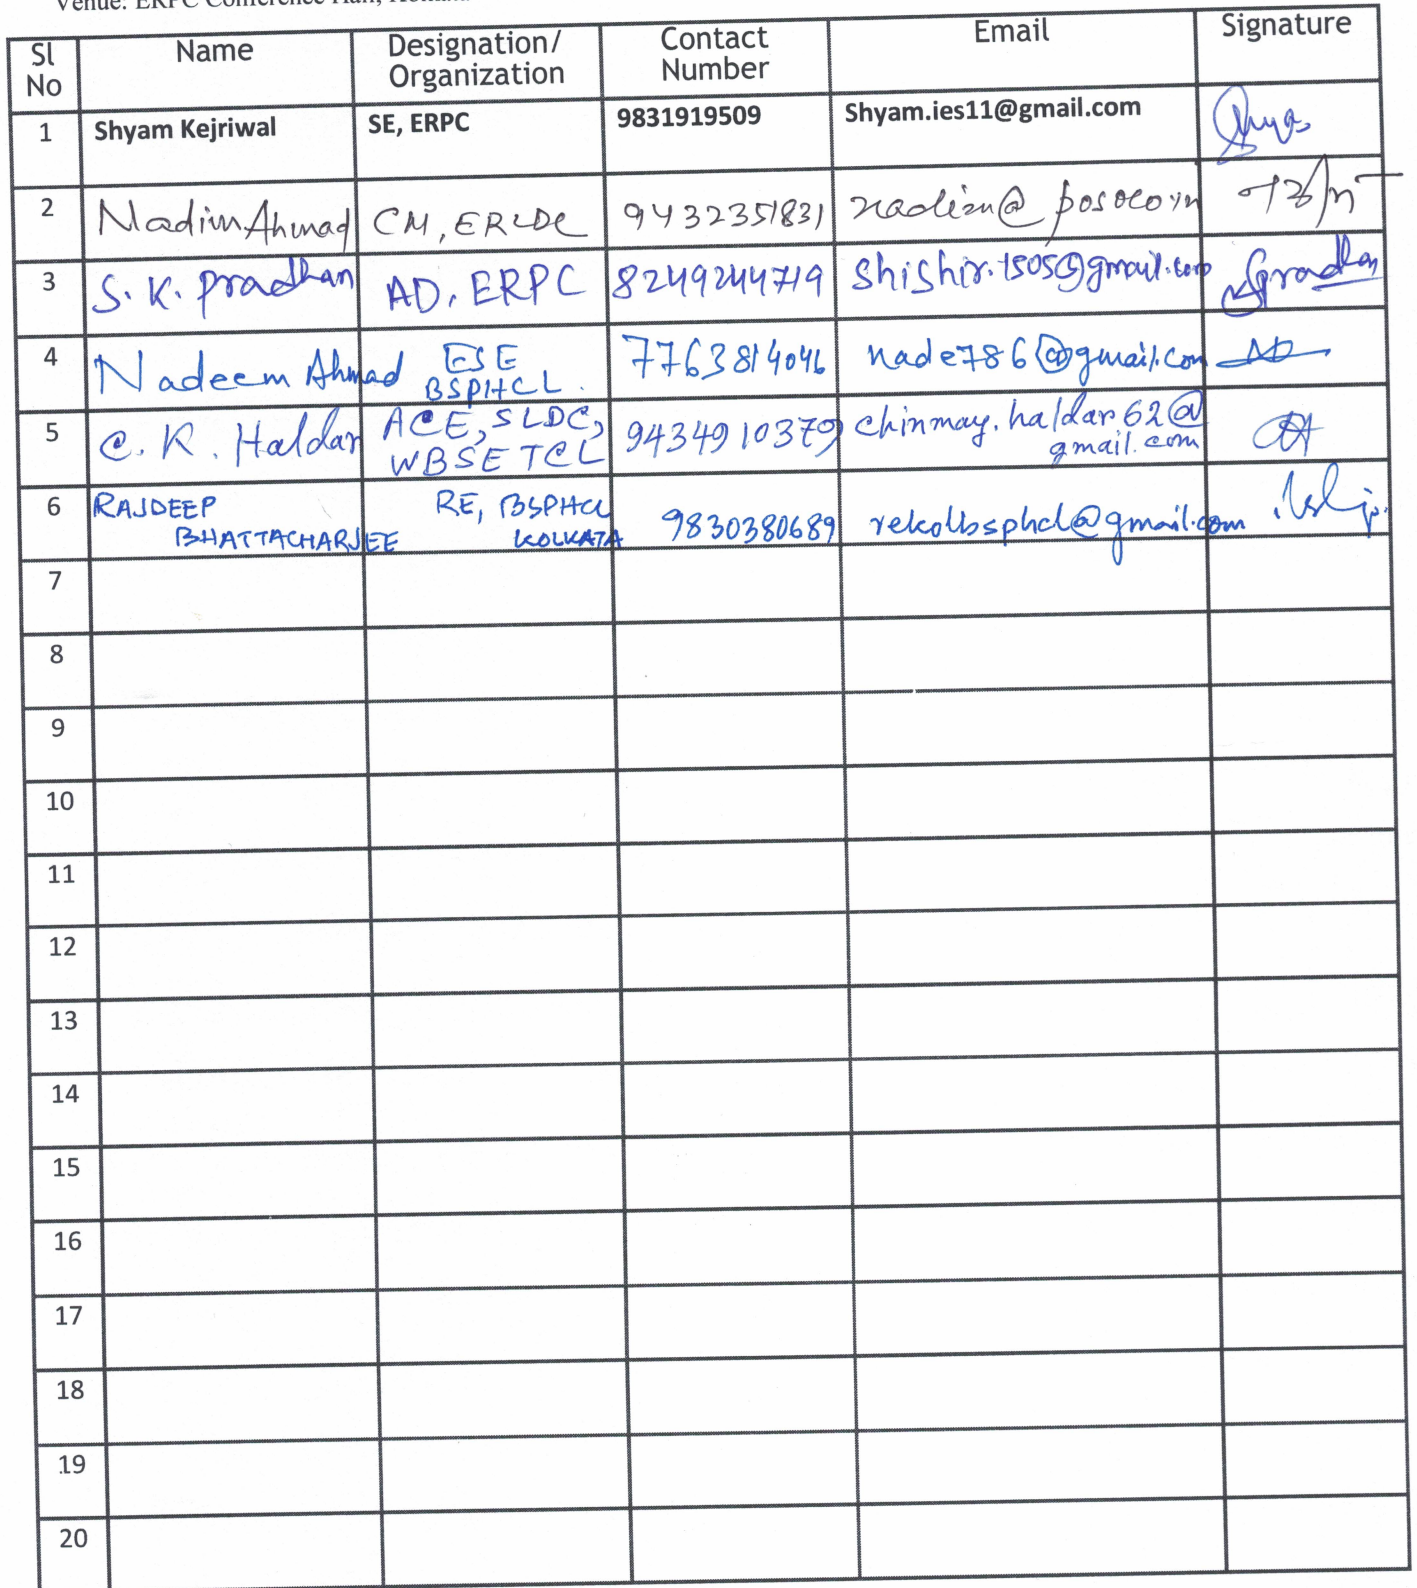 Venue: ERPC Conference Hall,
Sl No Name Designation/ Organization Contact Number Email Signature
1 Shyam Kejriwal SE, ERPC 9831919509 Shyam.ies11@gmail.com
2 Nadim Ahmad CM, ERLDC 9432351831 nadim@posoco.in
3 S. K. Pradhan AD, ERPC 8249244719 Shishir.1505@gmail.com Spradhan
4 Nadeem Ahmad ESE BSPHCL. 7763814046 nade786@gmail.com
5 C. K. Haldar ACE, SLDC, WBSETCL 9434910379 chinmay.haldar62@gmail.com
6 RAJDEEP BHATTACHARJEE RE, BSPHCL KOLKATA 9830380689 rekolbsphcl@gmail.com
7
8
9
10
11
12
13
14
15
16
17
18
19
20